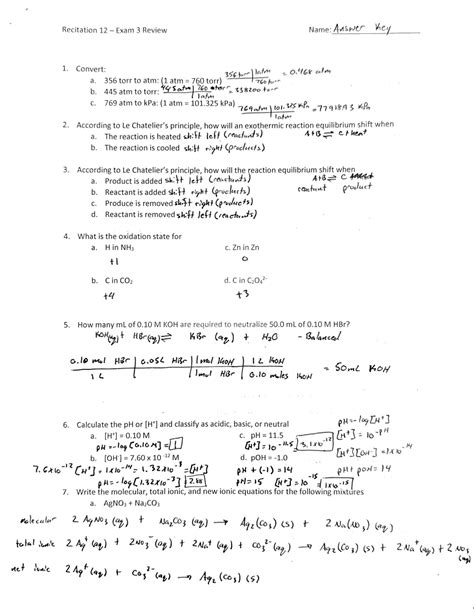 Recitation 12 – Exam 3 Review Name: Answer Key
1. Convert:
a. 356 torr to atm: (1 atm = 760 torr) 356 torr | 1 atm / 760 torr = 0.468 atm
b. 445 atm to torr: 445 atm | 760 torr / 1 atm = 338200 torr
c. 769 atm to kPa: (1 atm = 101.325 kPa) 769 atm | 101.325 kPa / 1 atm = 77918.93 kPa
2. According to Le Chatelier's principle, how will an exothermic reaction equilibrium shift when
a. The reaction is heated shift left (reactants) A+B ⇌ C + heat
b. The reaction is cooled shift right (products)
3. According to Le Chatelier's principle, will the reaction equilibrium shift when
a. Product is added shift left (reactants) A+B ⇌ C
b. Reactant is added shift right (products) reactant product
c. Produce is removed shift right (products)
d. Reactant is removed shift left (reactants)
4. What is the oxidation state for
a. H in NH₃ c. Zn in Zn
+1 0
b. C in CO₂ d. C in C₂O₄²⁻
+4 +3
5. How many mL of 0.10 M KOH are required to neutralize 50.0 mL of 0.10 M HBr?
KOH(aq) + HBr(aq) ⇌ KBr (aq) + H₂O - Balanced
0.10 mol HBr | 0.05L HBr | 1 mol KOH | 1 L KOH = 50mL KOH
1 L | 1 mol HBr | 0.10 moles
6. Calculate the pH or [H⁺] and classify as acidic, basic, or neutral pH=-log[H⁺]
a. [H⁺] = 0.10 M c. pH = 11.5 [H⁺] = 10^-pH
pH = -log[0.10 M] = 1 [H⁺] = 10^-11.5 = 3.1x10^-12 [H⁺][OH⁻] = 1x10^-14
b. [OH⁻] = 7.60 x 10⁻¹² M d. pOH = -1.0
7.6x10^-12 [H⁺] = 1x10^-14 = 1.32x10^-3 = [H⁺] pH + (-1) = 14 pH + pOH = 14
pH = -log[1.32x10^-3] = 2.88 pH = 15 [H⁺] = 10^-15 = 1x10^-15
7. Write the molecular, total ionic, and new ionic equations for the following mixtures
a. AgNO₃ + Na₂CO₃
molecular 2 AgNO₃ (aq) + Na₂CO₃ (aq) → Ag₂(CO₃) (s) + 2 Na(NO₃) (aq)
total ionic 2 Ag⁺ (aq) + 2NO₃⁻ (aq) + 2 Na⁺ (aq) + CO₃²⁻ (aq) → Ag₂(CO₃) (s) + 2 Na⁺(aq) + 2 NO₃⁻(aq)
net ionic 2 Ag⁺ (aq) + CO₃²⁻ (aq) → Ag₂(CO₃) (s)